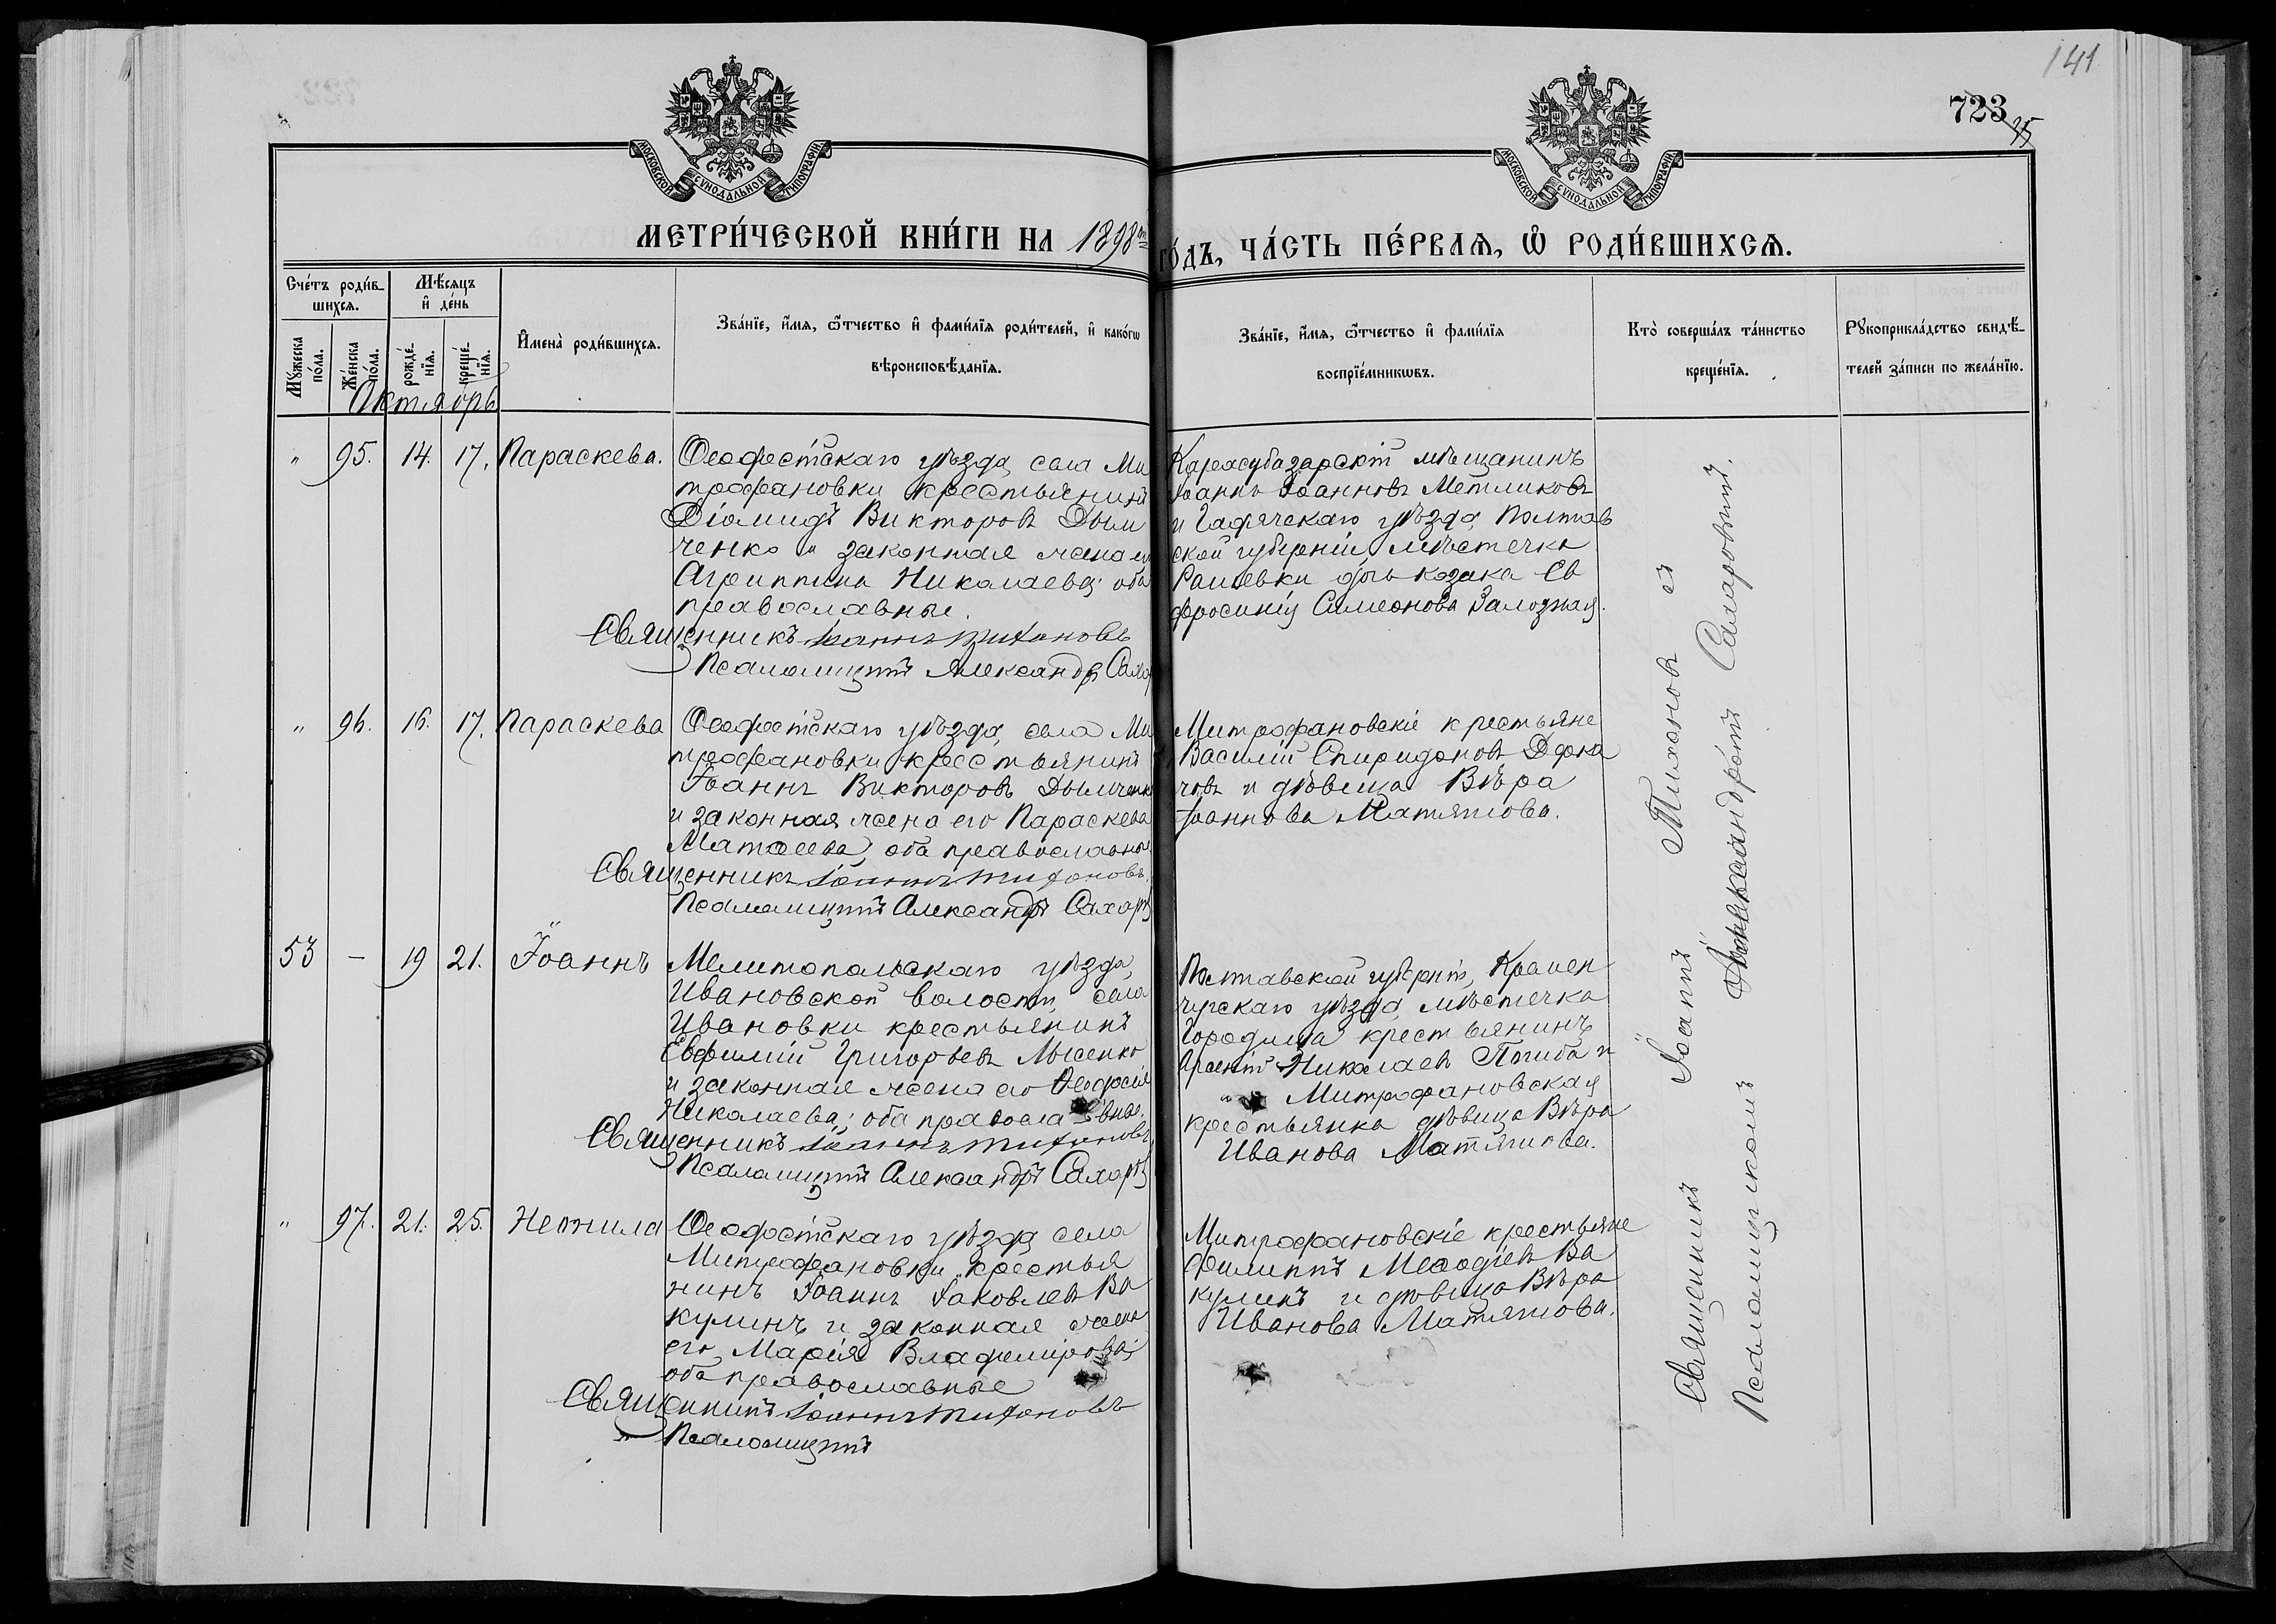 141
723
МОСКОВСКОЙ СѴНОДАЛЬНОЙ ТИПОГРАФІИ
МОСКОВСКОЙ СѴНОДАЛЬНОЙ ТИПОГРАФІИ
МЕТРИ́ЧЕСКОЙ КНИ́ГИ НА 1898й
ГО́ДЪ, ЧА́СТЬ ПЕ́РВАѦ, Ѽ РОДИ́ВШИХСѦ.
Сче́тъ роди́в-
шихсѧ.
Мѣ́сѧцъ
и҆ де́нь
Мꙋжеска
по́ла.
Же́нска
по́ла.
рожде́-
нїѧ.
креще́-
нїѧ.
И҆мена̀ роди́вшихсѧ.
Зва́нїе, и҆́мѧ, ѻ҆́тчество и҆ фами́лїѧ роди́телей, и҆ како́гѡ
вѣроисповѣ́данїѧ.
Зва́нїе, и҆́мѧ, ѻ҆́тчество и҆ фами́лїѧ
воспрїе́мникѡвъ.
Кто̀ соверша́лъ та́инство
креще́нїѧ.
Рꙋкоприкла́дство свидѣ́-
телей за́писи по жела́нїю.
Октябрь
" 95. 14. 17. Параскева.
Ѳеодосійскаго уѣзда, села Ми
трофановки крестьянинъ
Діомидъ Викторовъ Дым
ченко и законная жена его
Агриппина Николаева; оба
православные.
Священникъ Іоаннъ Тихоновъ
Псаломщикъ Александръ
Карасубазарскій мѣщанинъ
Іоаннъ Іоанновъ Метликовъ
и Гадячскаго уѣзда, Полтав
ской губерніи, мѣстечка
Рашевки дочь козака Ев
фросинія Симеонова Залозная.
" 96. 16. 17. Параскева
Ѳеодосійскаго уѣзда, села Ми
трофановки крестьянинъ
Іоаннъ Викторовъ Дымченко
и законная жена его Параскева
Матѳеева, оба православные
Священникъ Іоаннъ Тихоновъ.
Псаломщикъ Александръ
Митрофановскіе крестьяне
Василій Спиридоновъ
и дѣвица Вѣра
Іоаннова Матяшова.
53 — 19 21. Іоаннъ
Мелитопольскаго уѣзда,
Ивановской волости, села
Ивановки крестьянинъ
Евфимій Григорьевъ Лысенко
и законная жена его Ѳеодосія
Николаева; оба православные.
Священникъ Іоаннъ Тихоновъ
Псаломщикъ Александръ
Полтавской губерніи, Кремен
чугскаго уѣзда, мѣстечка
Городища крестьянинъ
Арсеній Николаевъ Погиба и
Митрофановская
крестьянка дѣвица Вѣра
Иванова Матяшова.
" 97. 21. 25. Неонила
Ѳеодосійскаго уѣзда села
Митрофановки крестья
нинъ Іоаннъ Іаковлевъ Ва
кулинъ и законная жена
его Марія Владимірова;
оба православные
Священникъ Іоаннъ Тихоновъ
Псаломщикъ
Митрофановскіе крестьяне
Филиппъ Меѳодіевъ Ва
кулинъ и дѣвица Вѣра
Иванова Матяшова.
Священникъ Іоаннъ Тихоновъ съ
Псаломщикомъ